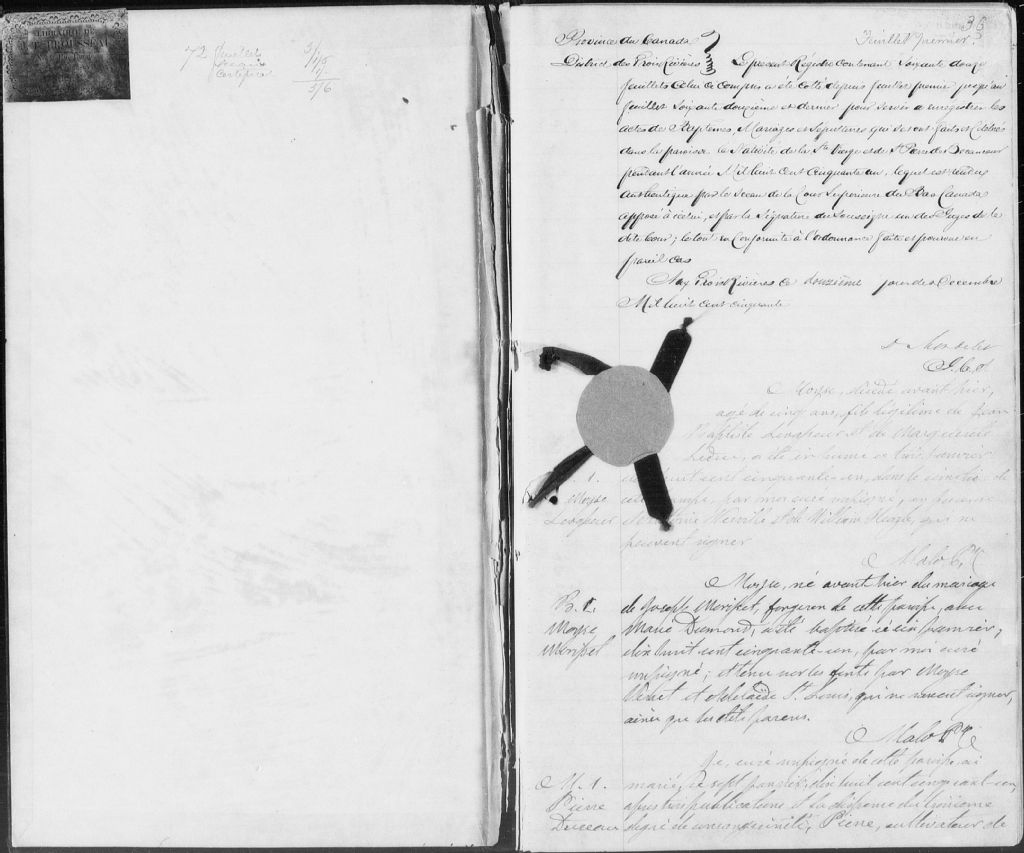 72 feuillets
36
Feuillet premier.
Province du Canada
District des Trois Rivières } Le present Régistre contenant soixante douze
feuillets celui ce compris a été cotté depuis feuillet premier jusqu'au
feuillet soixante douzième et dernier pour servir a enregistrer les
actes des Baptêmes, Mariages et Sépultures qui seront faits et célébrés
dans la paroisse la Nativité de la Ste Vierge et de St Pierre de Becancour
pendant l'année Mil huit cent cinquante un, lequel est rendu
authentique par le sceau de la Cour Supérieure du Bas Canada
apposé à icelui, et par la signature du soussigné un des Juges de la
dite Cour; le tout en conformité à l'ordonnance faite et pourvue en
pareil cas
Aux Trois Rivières ce douzième jour de Decembre
Mil huit cent cinquante
J.C.S.
Moyse, décédé avant hier,
agé de cinq ans, fils légitime de Jean
Baptiste Levasseur et de Marguerite
Leduc, a été inhumé ce trois janvier
huit cent cinquante-un, dans le cimetière de
par moi curé soussigné, en présence
et de William qui ne
peuvent signer
S. 1.
Moyse
Levasseur
Malo Ptr
Moyse, né avant hier du mariage
B. 1.
Moyse
Morisset
de Joseph Morisset, forgeron de cette paroisse, avec
Marie Dumond, a été baptisé ce six janvier,
dix huit cent cinquante-un, par moi curé
soussigné; et tenu sur les fonts par Moyse
et Adelaïde St. Louis, qui ne savent signer,
ainsi que les dits parens.
Malo Ptr
Je, curé soussigné de cette paroisse, ai
M. 1.
Pierre
Duceau
marié, ce sept janvier, dix huit cent cinquante-un,
après trois publications et la dispense du troisième
degré de consanguinité, Pierre, cultivateur de